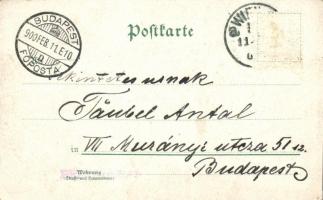 BUDAPEST
900 FEB. 11. E 10
FŐPOSTA
Postkarte
WIEN
11.
Tekintetes urnak
Täubel Antal
in VII Murányi utcza 51 sz.
Wohnung
Budapest